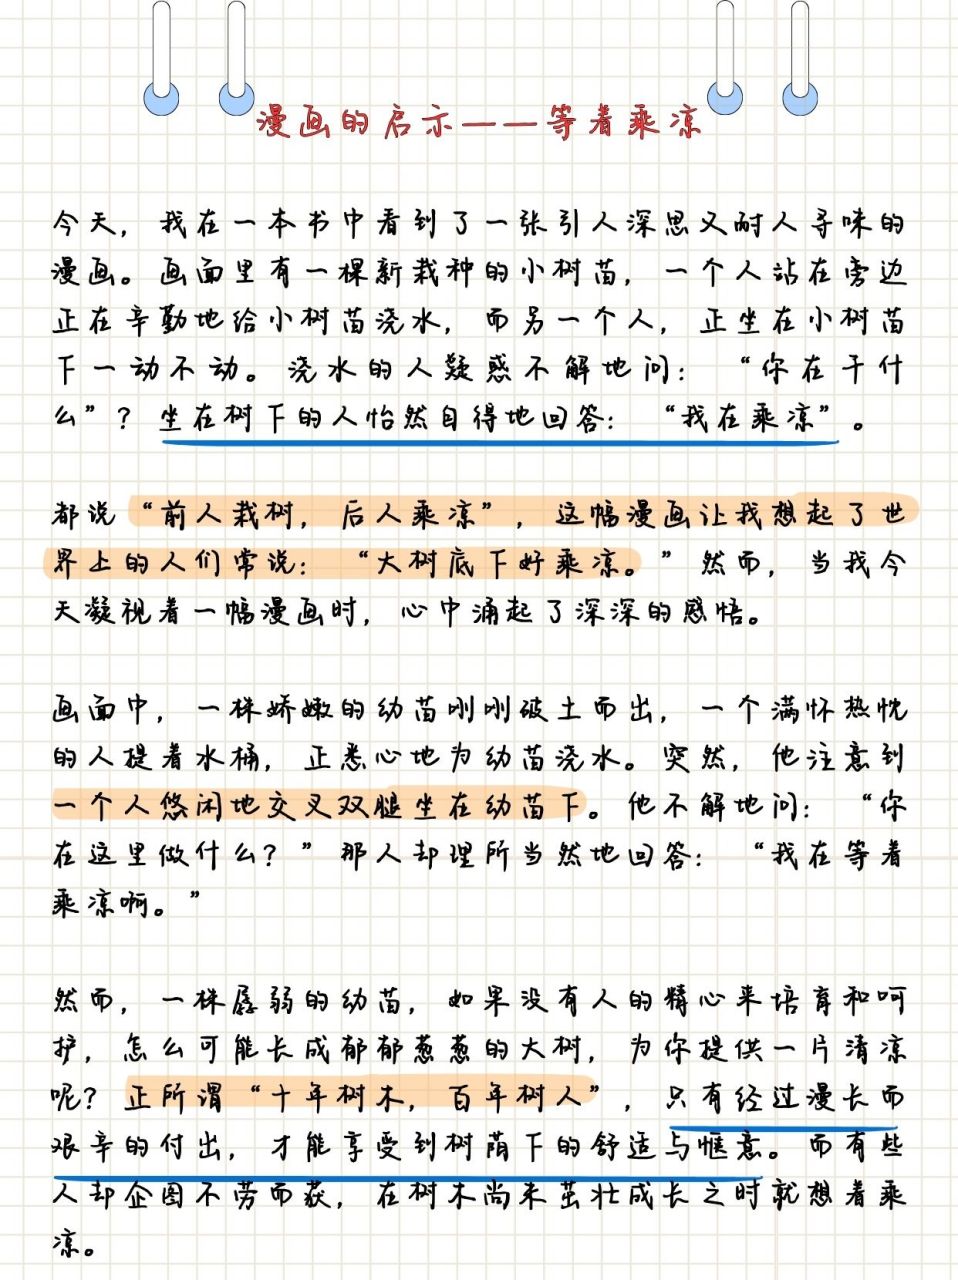 漫画的启示——等着乘凉
今天，我在一本书中看到了一张引人深思又耐人寻味的
漫画。画面里有一棵新栽种的小树苗，一个人站在旁边
正在辛勤地给小树苗浇水，而另一个人，正坐在小树苗
下一动不动。浇水的人疑惑不解地问：“你在干什
么”？坐在树下的人怡然自得地回答：“我在乘凉”。
都说“前人栽树，后人乘凉”，这幅漫画让我想起了世
界上的人们常说：“大树底下好乘凉。”然而，当我今
天凝视着一幅漫画时，心中涌起了深深的感悟。
画面中，一株娇嫩的幼苗刚刚破土而出，一个满怀热忱
的人提着水桶，正悉心地为幼苗浇水。突然，他注意到
一个人悠闲地交叉双腿坐在幼苗下。他不解地问：“你
在这里做什么？”那人却理所当然地回答：“我在等着
乘凉啊。”
然而，一株孱弱的幼苗，如果没有人的精心来培育和呵
护，怎么可能长成郁郁葱葱的大树，为你提供一片清凉
呢？正所谓“十年树木，百年树人”，只有经过漫长而
艰辛的付出，才能享受到树荫下的舒适与惬意。而有些
人却企图不劳而获，在树木尚未茁壮成长之时就想着乘
凉。